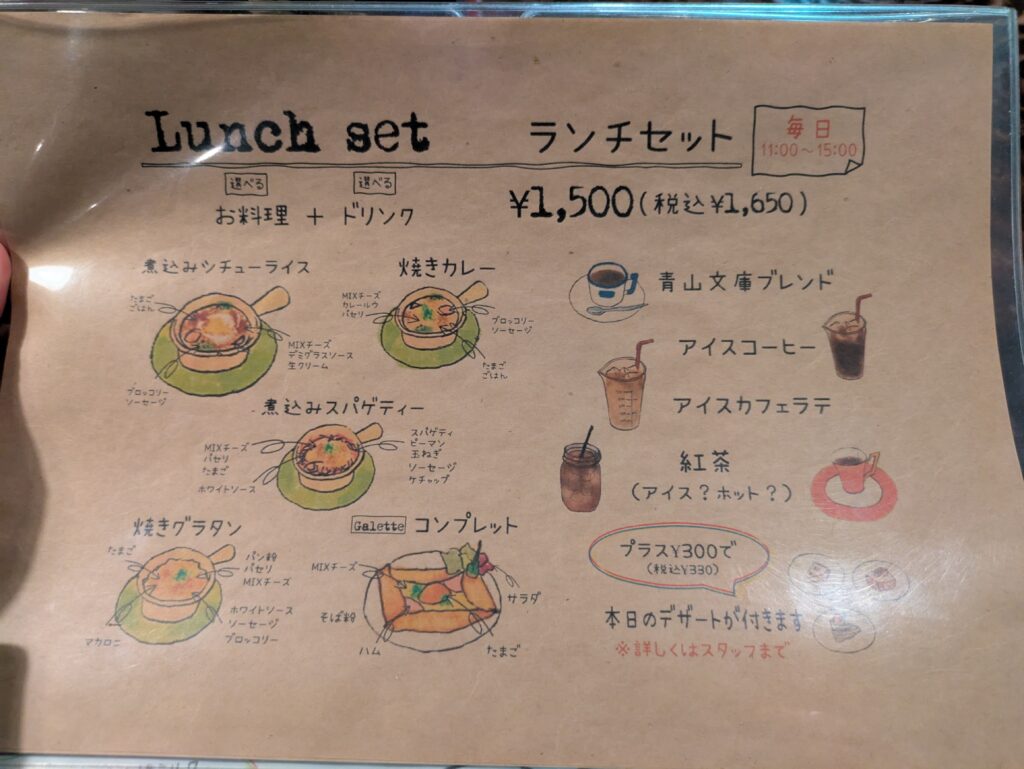 Lunch set ランチセット
毎日
11:00～15:00
選べる 選べる
お料理 + ドリンク
¥1,500(税込¥1,650)
煮込みシチューライス
たまご
ごはん
MIXチーズ
デミグラスソース
生クリーム
ブロッコリー
ソーセージ
焼きカレー
MIXチーズ
カレールウ
パセリ
ブロッコリー
ソーセージ
たまご
ごはん
煮込みスパゲティー
MIXチーズ
パセリ
たまご
ホワイトソース
スパゲティ
ピーマン
玉ねぎ
ソーセージ
ケチャップ
焼きグラタン
たまご
パン粉
パセリ
MIXチーズ
ホワイトソース
ソーセージ
ブロッコリー
マカロニ
Galette コンプレット
MIXチーズ
そば粉
ハム
サラダ
たまご
青山文庫ブレンド
アイスコーヒー
アイスカフェラテ
紅茶
(アイス?ホット?)
プラス¥300で
(税込¥330)
本日のデザートが付きます
※詳しくはスタッフまで